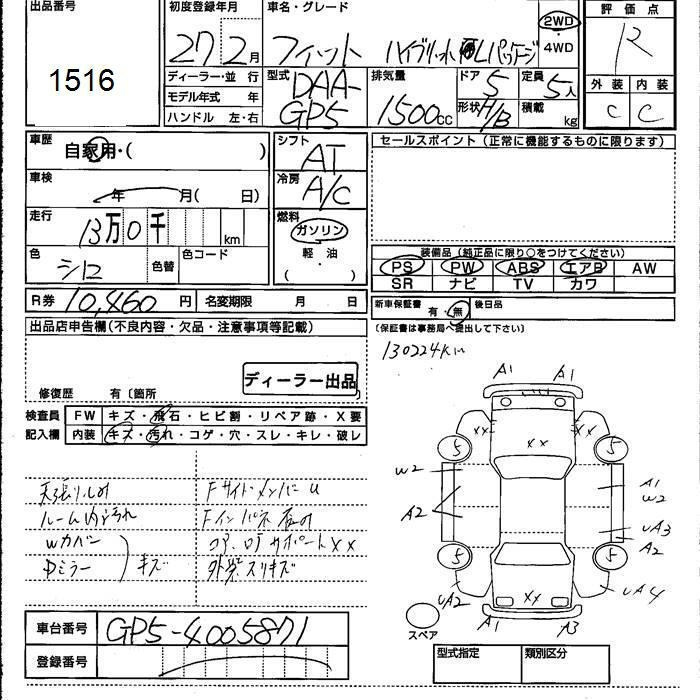 出品番号
1516
初度登録年月
27 2月
ディーラー・並 行
モデル年式 年
ハンドル 左・右
車名・グレード
フィット ハイブリット Lパッケージ
2WD
4WD
型式
DAA-
GP5
排気量
1500cc
ドア 5
形状 H/B
定員 5人
積載 kg
評価点
R
外装 内装
C C
車歴
自家用・( )
車検
年 月( 日)
走行
13万0千 km
色
シロ
色替
色コード
シフト
AT
冷房
A/C
燃料
ガソリン
軽・油
( )
セールスポイント(正常に機能するものに限ります)
装備品(純正品に限り○をつけてください)
PS PW ABS エアB AW
SR ナビ TV カワ
R券 10,460円 名変期限 月 日
新車保証書 有・無 後日品
(保証書は事務局へ提出して下さい)
出品店申告欄(不良内容・欠品・注意事項等記載)
ディーラー出品
修復歴 有〔箇所
130224Km
検査員
記入欄
FW キズ・飛石・ヒビ割・リペア跡・X要
内装 キズ・汚れ・コゲ・穴・スレ・キレ・破レ
天張りしみ
ルーム内汚れ
Wカバー
ミラー
キズ
FサイドメンバーU
Fインパネ
サポートXX
外装スリキズ
A1 A1
XX XX XX
5 5
W2
A2
A1
W2
UA3
A2
5 5
UA2
XX
UA4
A1 A3
スペア
車台番号 GP5-4005871
登録番号
型式指定 類別区分